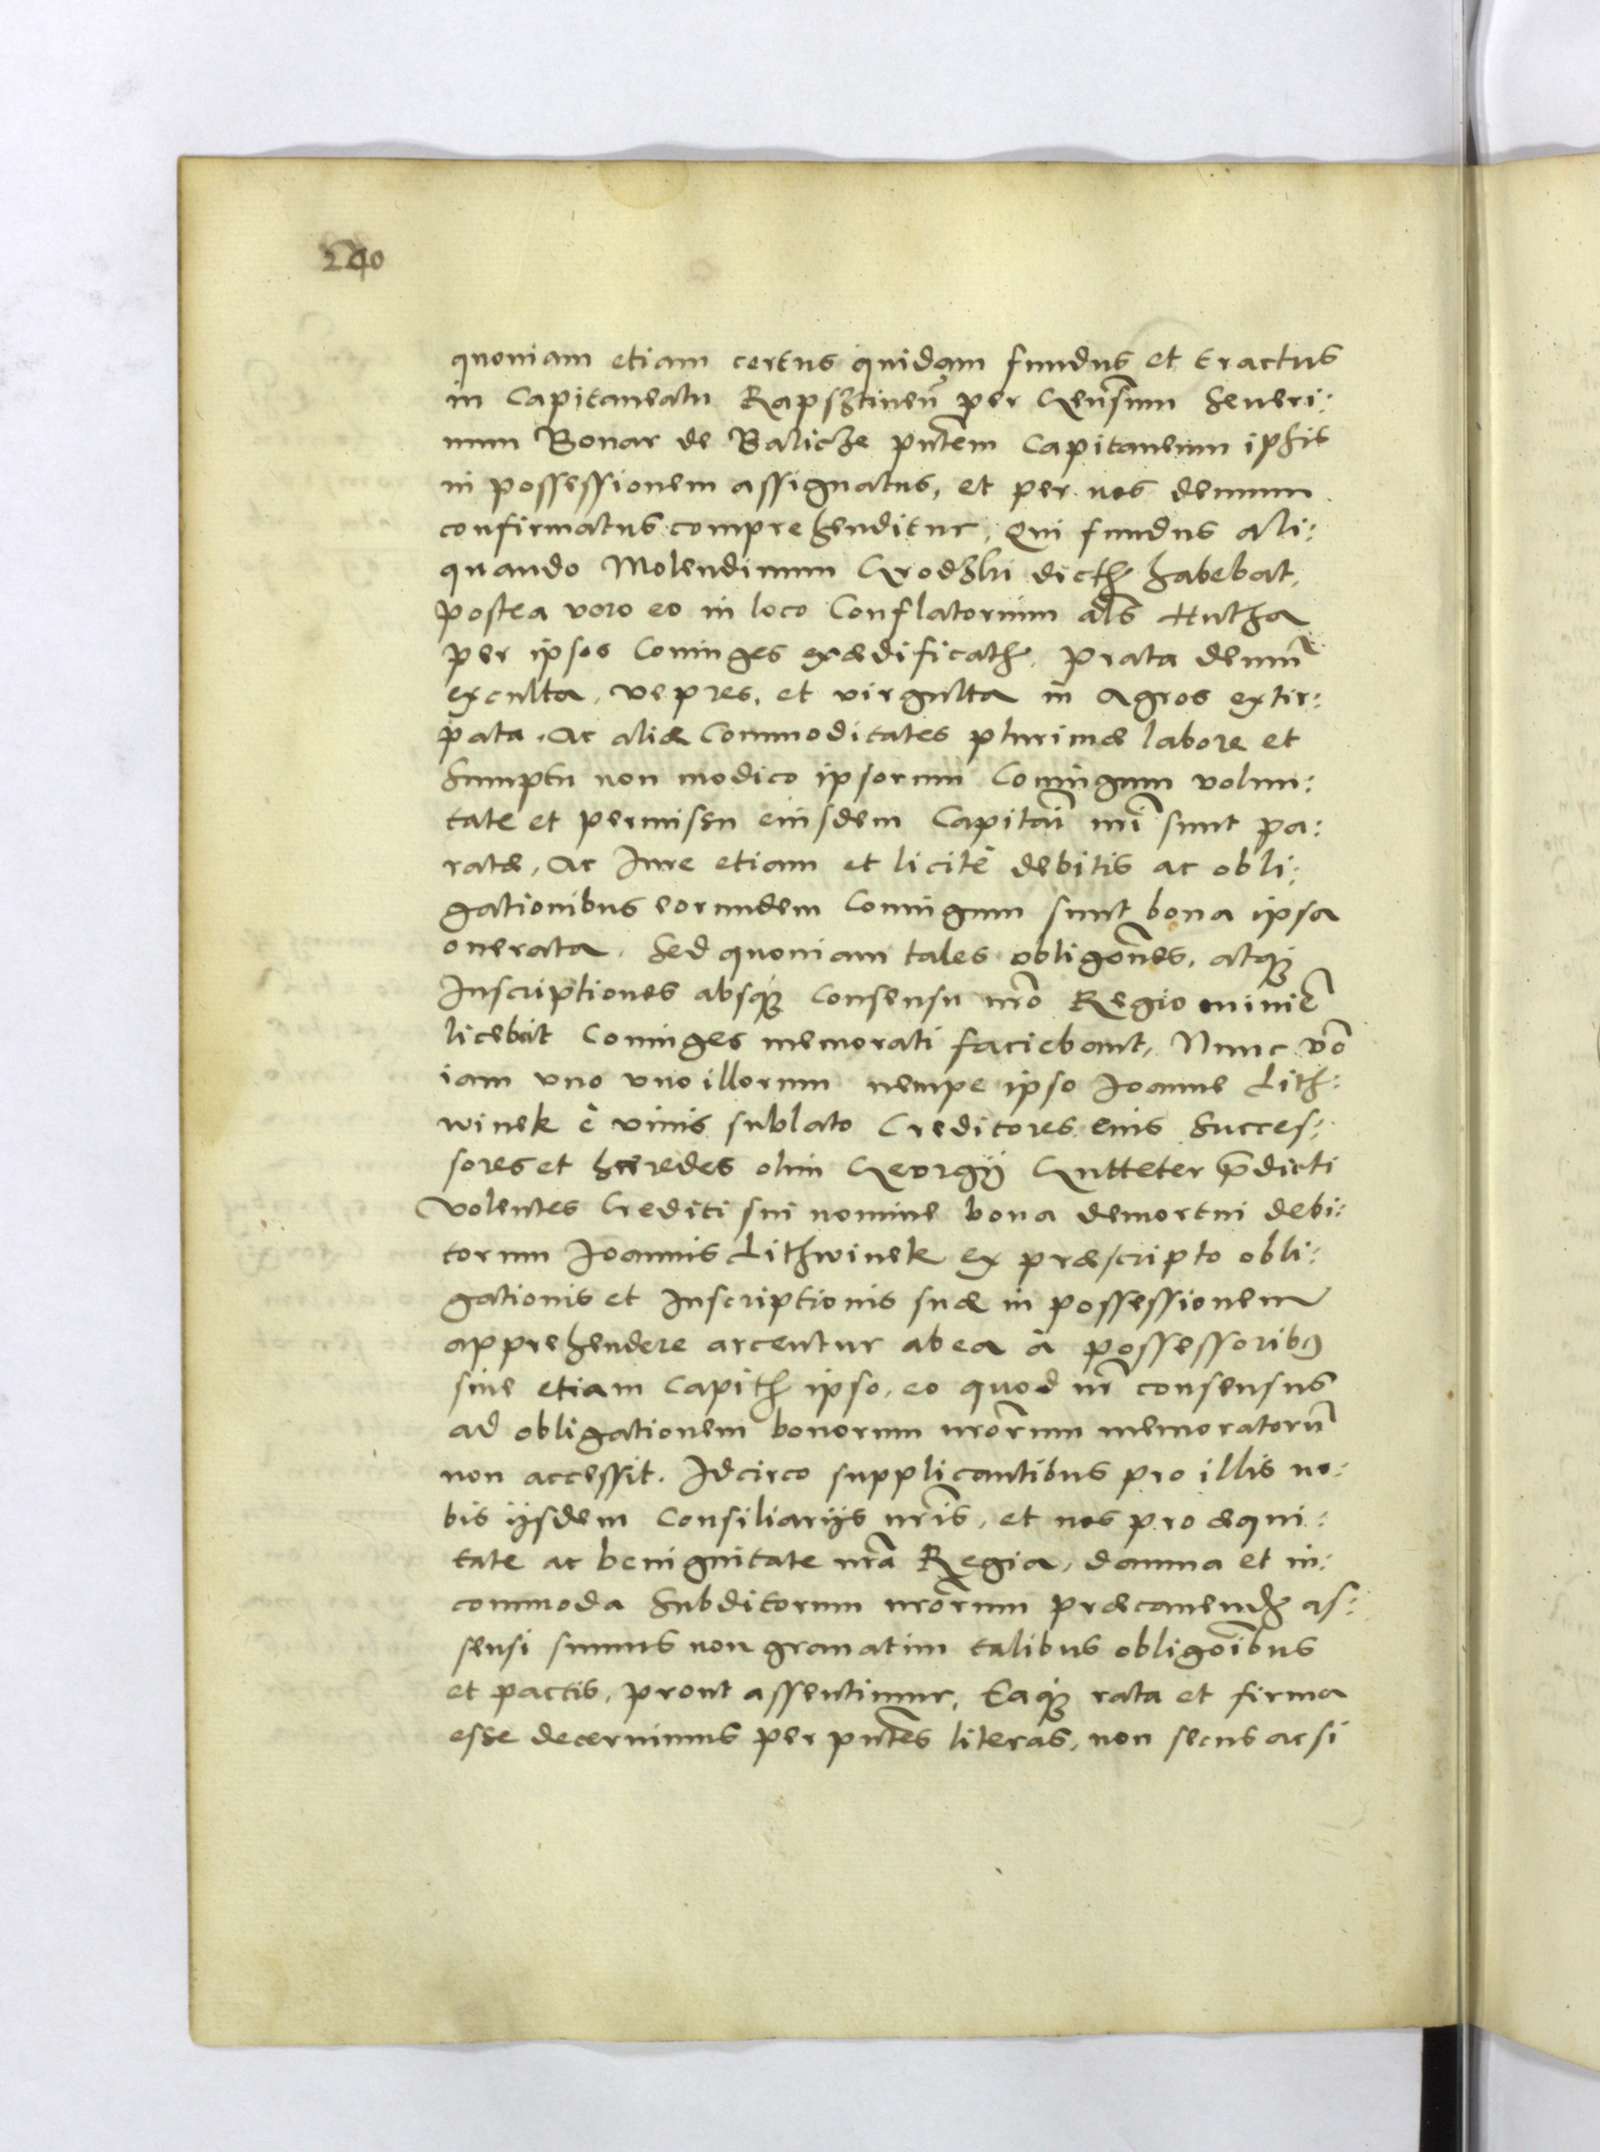 240
quoniam etiam certus quidam fundus et tractus
in Capitaneatu Rapsztineñ per Gensum Seueri:
num Bonar de Balicze pñtem Capitaneum ipsis
in possessionem assignatus, et per nos demum
confirmatus comprehenditur, Qui fundus ali:
quando Molendinum Grodzki dicth habebat,
postea vero eo in loco Conflatorium als Hutha
per ipsos Coniuges exædificath, prata demũ
exculta, vepres, et virgulta in Agros extir:
pata, Ac aliæ Commoditates plurimæ labore et
Sumptu non modico ipsorum Coniugum volun:
tate et permissu eiusdem Capitãi nri sunt pa:
ratæ, Ac Iure etiam et licitè debitis ac obli:
gationibus eorundem Coniugum sunt bona ipsa
onerata. Sed quoniam tales obligões, atq;
Inscriptiones absq; Consensu nrõ Regio minimẽ
licebat Coniuges memorati faciebant, Nunc võ
iam vno vno illorum nempe ipso Joanne Lith:
winek è viuis sublato Creditores eius Succes:
sores et hæredes olim Georgij Gutteter p̃dicti
volentes Crediti sui nomine bona demortui debi:
torum Joannis Lithwinek ex præscripto obli:
gationis et Inscriptionis suæ in possessionem
apprehendere arcentur ab ea à possessorib9
siue etiam Capith ipso, eo quod nr̃ consensus
ad obligationem bonorum nrõrum memoratorũ
non accessit. Idcirco supplicantibus pro illis no:
bis ijsdem Consiliarijs nrĩs, et nos pro æqui:
tate ac benignitate nrã Regia, damna et in:
commoda Subditorum nrõrum præcauend as:
sensi sumus non grauatim talibus obligõibus
et pactis, prout assentimur, Eaq; rata et firma
esse decernimus per pñtes literas, non secus ac si